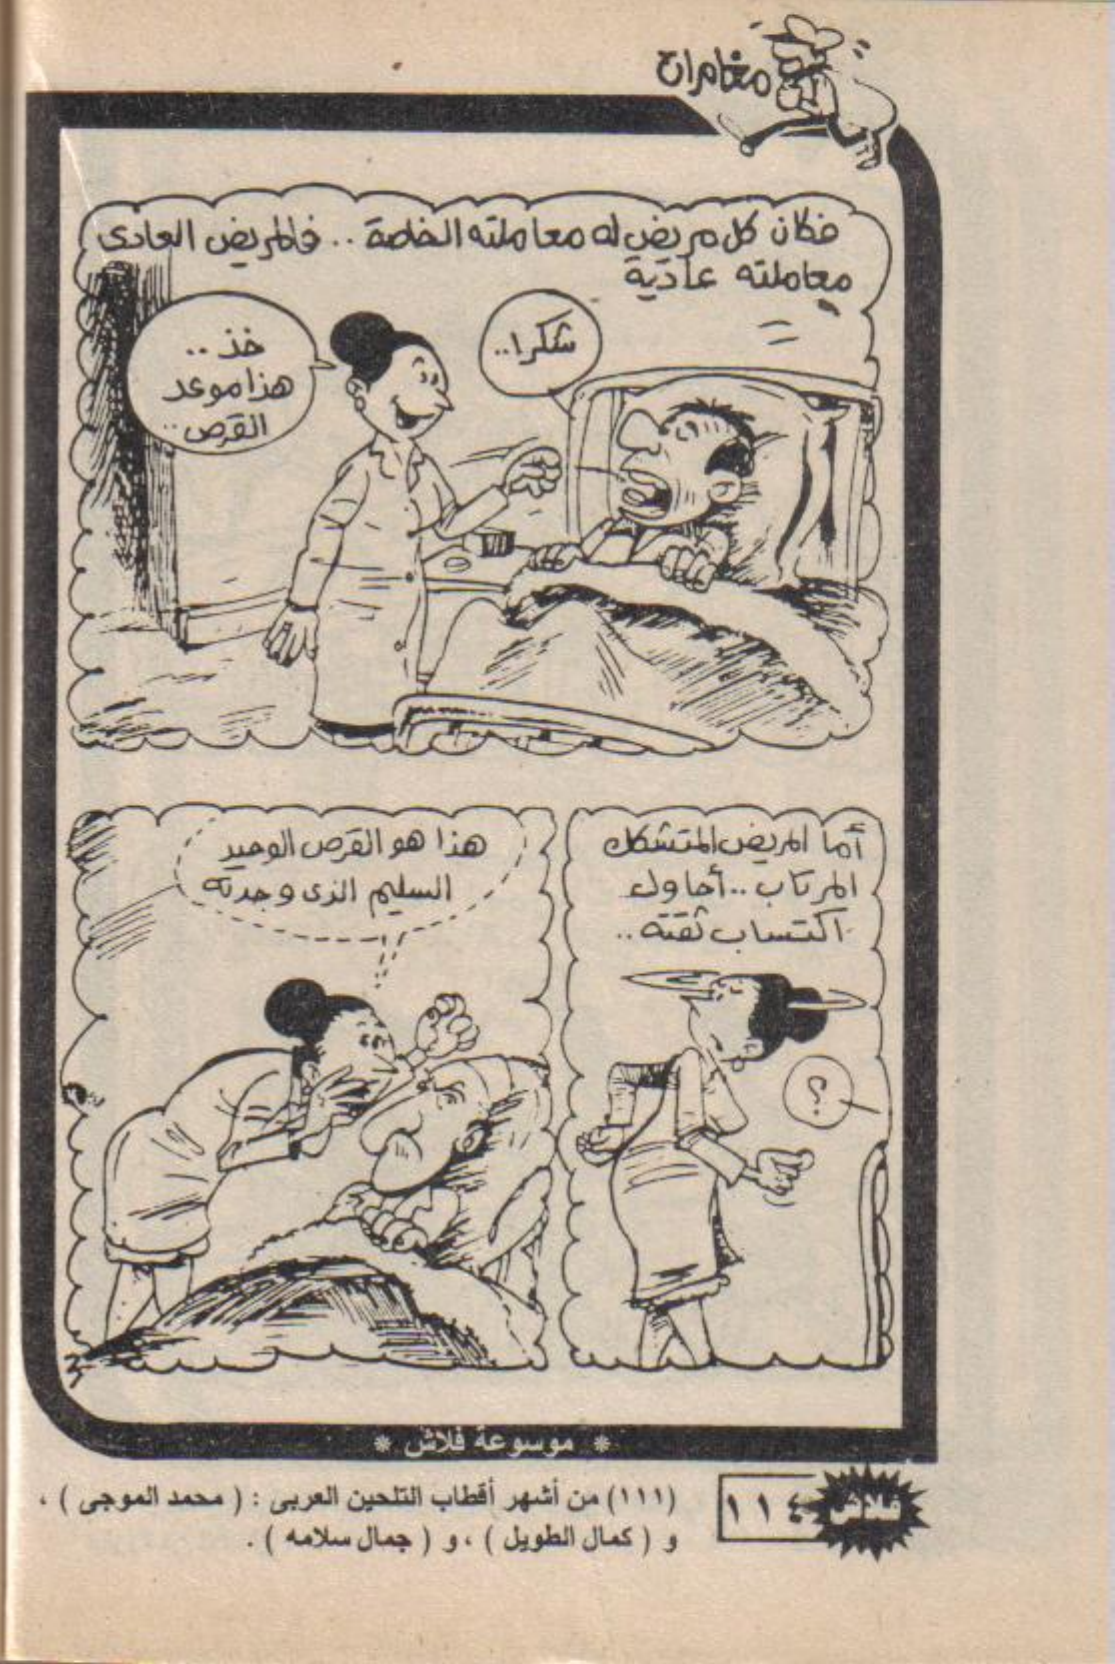 مغامرات
فكان كل مريض له معاملته الخاصة .. فالمريض العادى
معاملته عادية
شكرا..
خذ ..
هذا موعد
القرص ..
أما المريض المتشكك
المرتاب .. أحاول
اكتساب ثقته ..
هذا هو القرص الوحيد
السليم الذى وجدته
* موسوعة فلاش *
(١١١) من أشهر أقطاب التلحين العربى : ( محمد الموجى ) ،
و ( كمال الطويل ) ، و ( جمال سلامه ) .
فلاش ١١٤